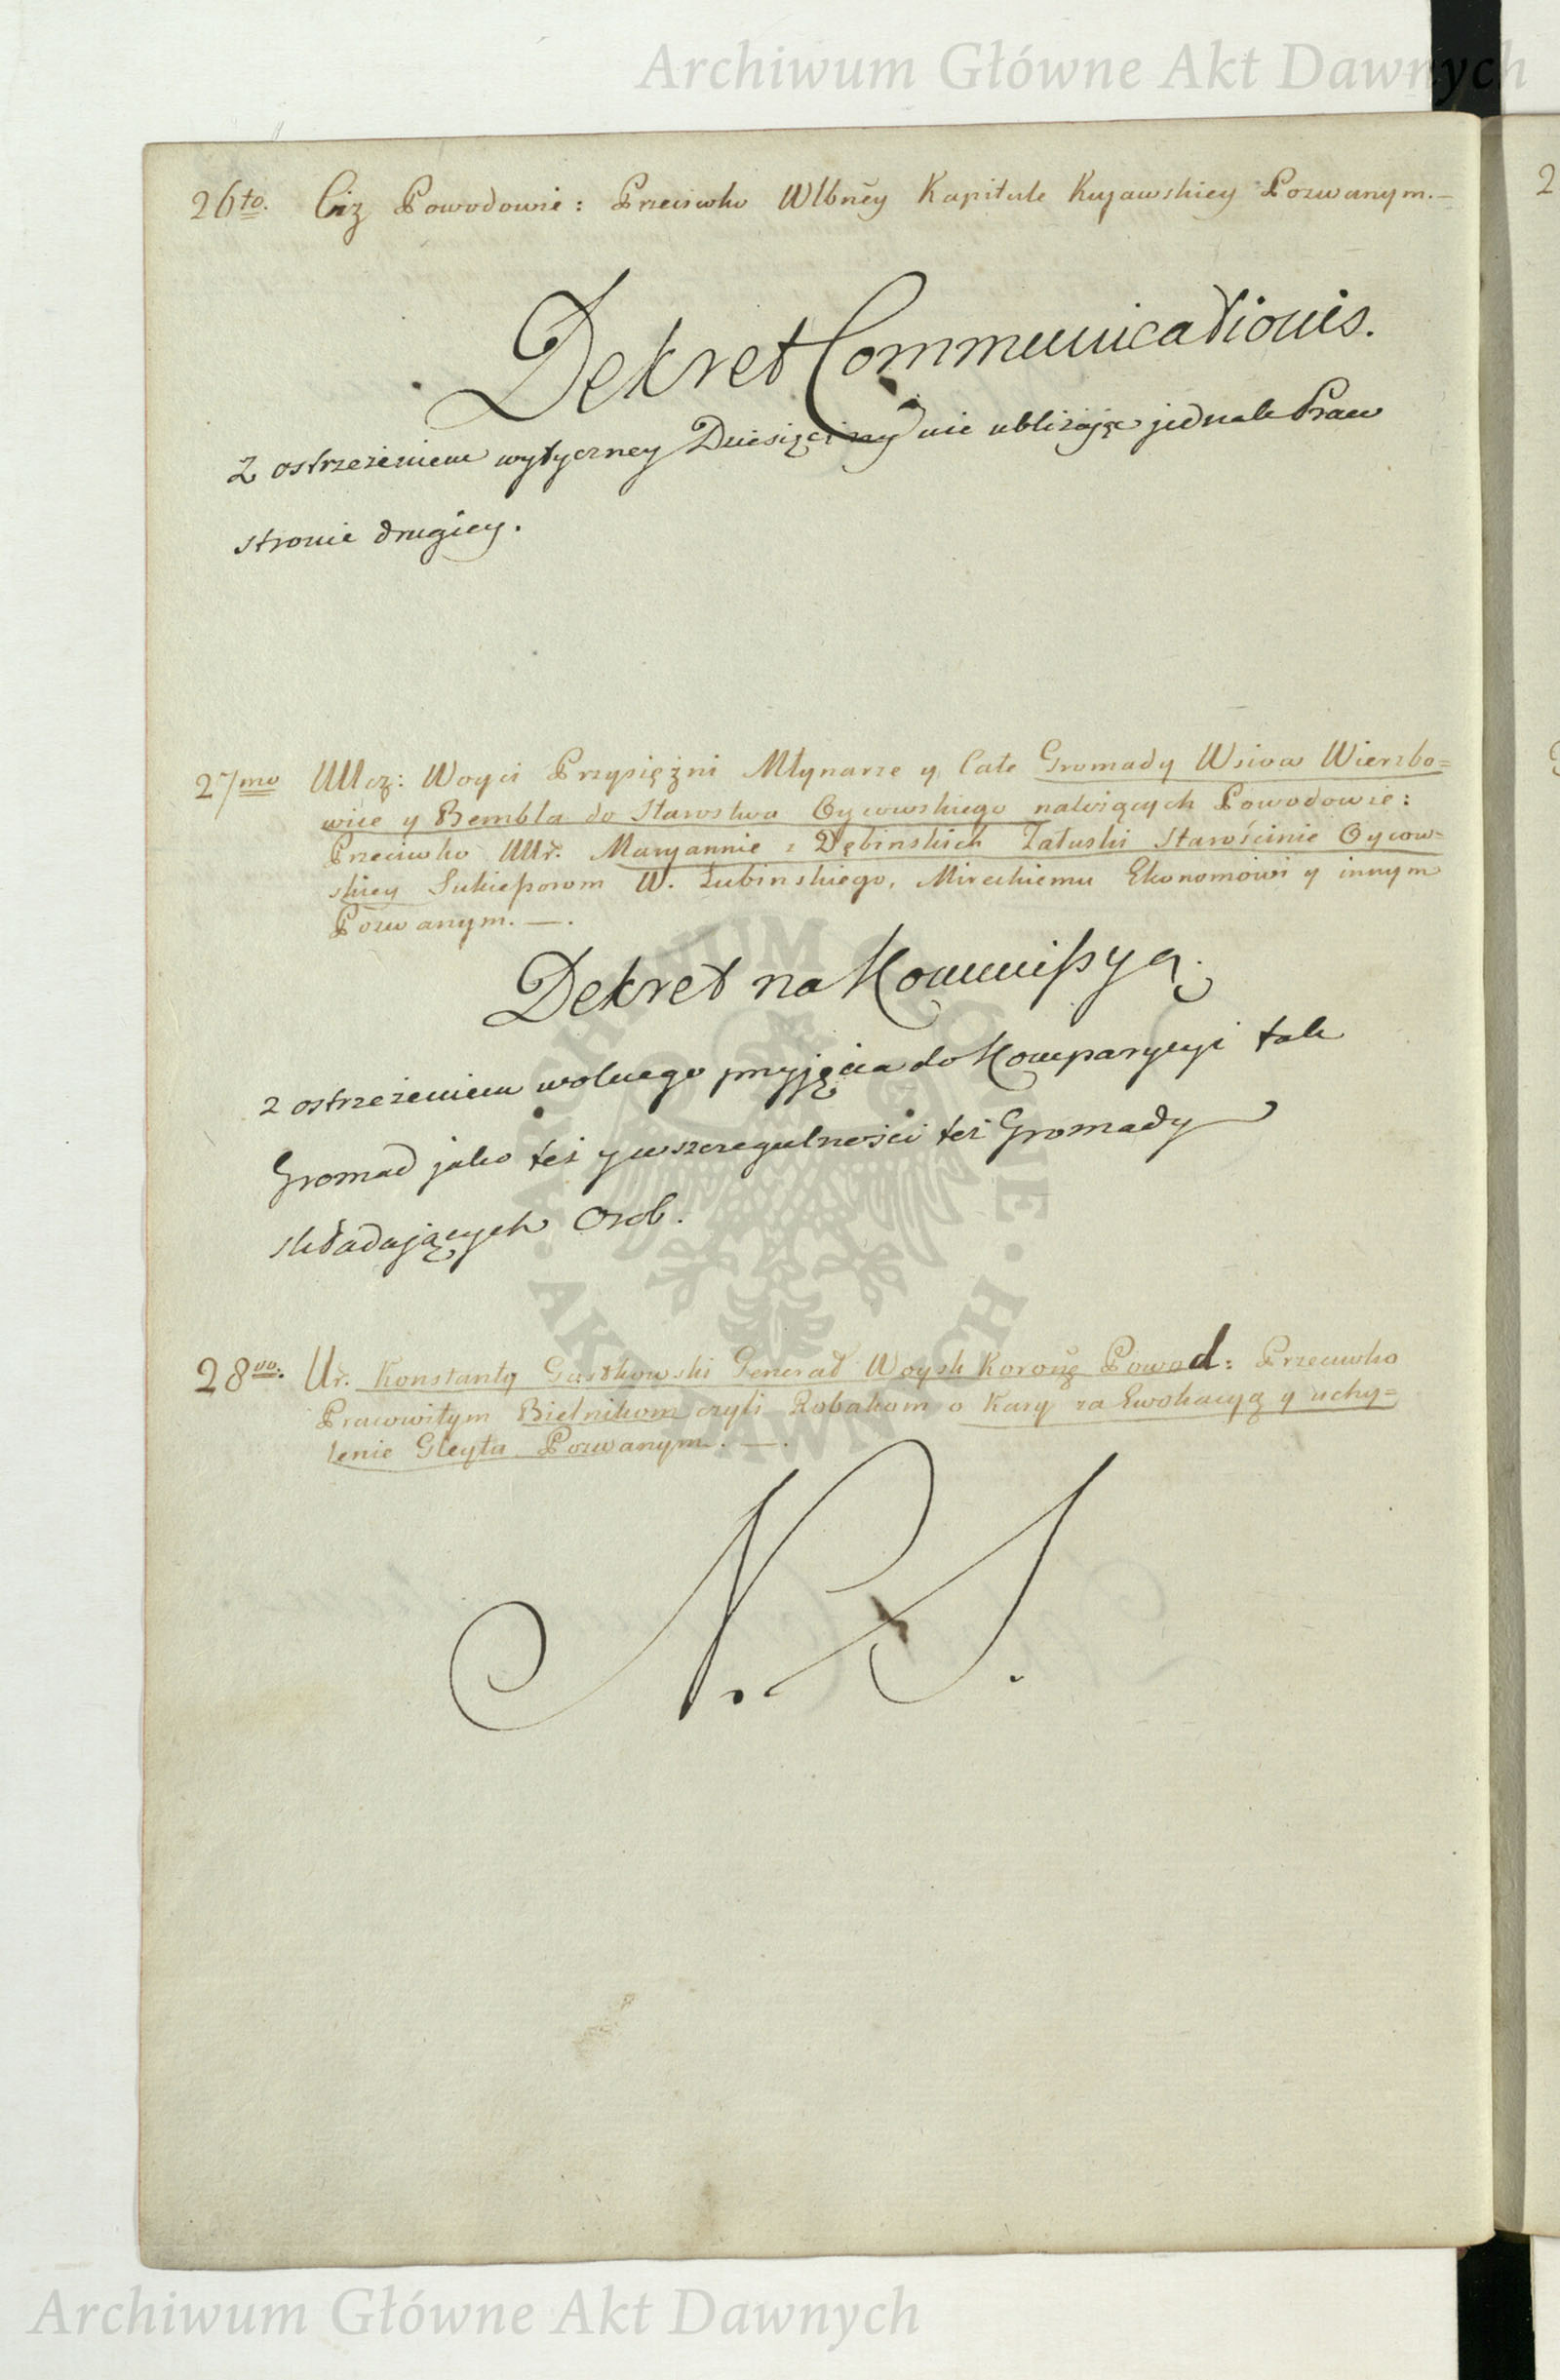 Archiwum Główne Akt Dawnych
26to. Ciz Powodowie: Przeciwko Wlbney Kapitule Kujawskiey Pozwanym.—
Dekret Communicationis.
z ostrzezeniem wytyczney Dziesięciny nie ubliżając jednak Praw
stronie drugiey.
27mo UUcz: Woyci Przysiężni Młynarze y Całe Gromady Wsiow Wierzbo=
wice y Bembla do Starostwa Oycowskiego należących Powodowie:
Przeciwko UUr. Maryannie z Dębinskich Załuski Starościnie Oycow=
skiey Sukceßorom W. Łubinskiego, Mireckiemu Ekonomowi y innym
Pozwanym. —.
Dekret na Kommißyą.
z ostrzezeniem wolnego przyjęcia do Komparycyi tak
Gromad jako też y w szczegulności też Gromady
składających Osob.
28vo. Ur. Konstanty Generał Woysk Koronę Powod: Przeciwko
Pracowitym Bielnikom czyli Robakom o Kary za Ewokacyą y uchy=
lenie Gleyta Pozwanym. —.
N. S.
ARCHIWUM GŁÓWNE
· AKT DAWNYCH ·
Archiwum Główne Akt Dawnych